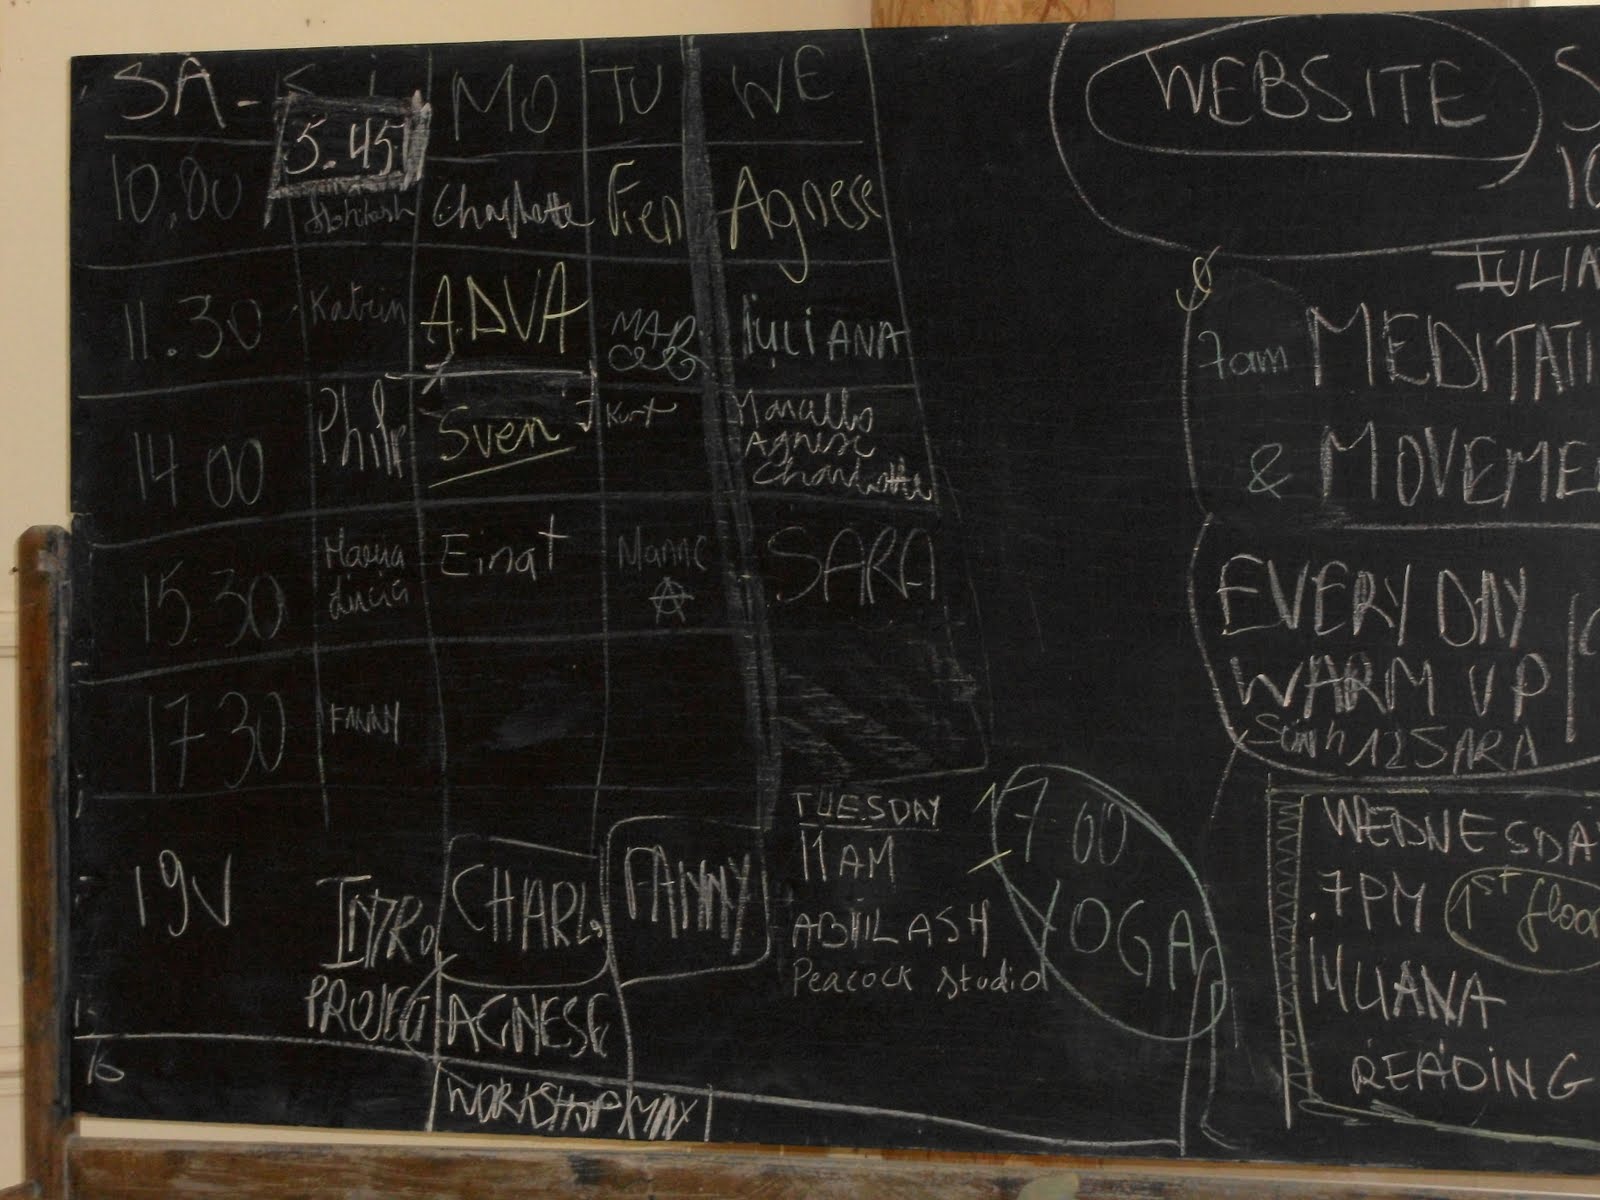 SA- MO TU WE
5.45
10.00 Abhilash Charlotte Fien Agnese
11.30 Katrin ADVA IULIANA
14 00 Sven Kurt Marcello
Agnese
Charlotte
15.30 Maria Einat SARA
Lucia
17 30 FANNY
INTRO CHARL. FANNY
PROJECT AGNESE
16
WORKSHOP MAX
TUESDAY
11 AM
ABHILASH
Peacock studio
7 00
YOGA
WEBSITE S
10
IULIA
7am MEDITATI
& MOVEME
EVERY DAY
WARM UP
12 SARA
WEDNESDA
7PM 1st floor
IULIANA
READING